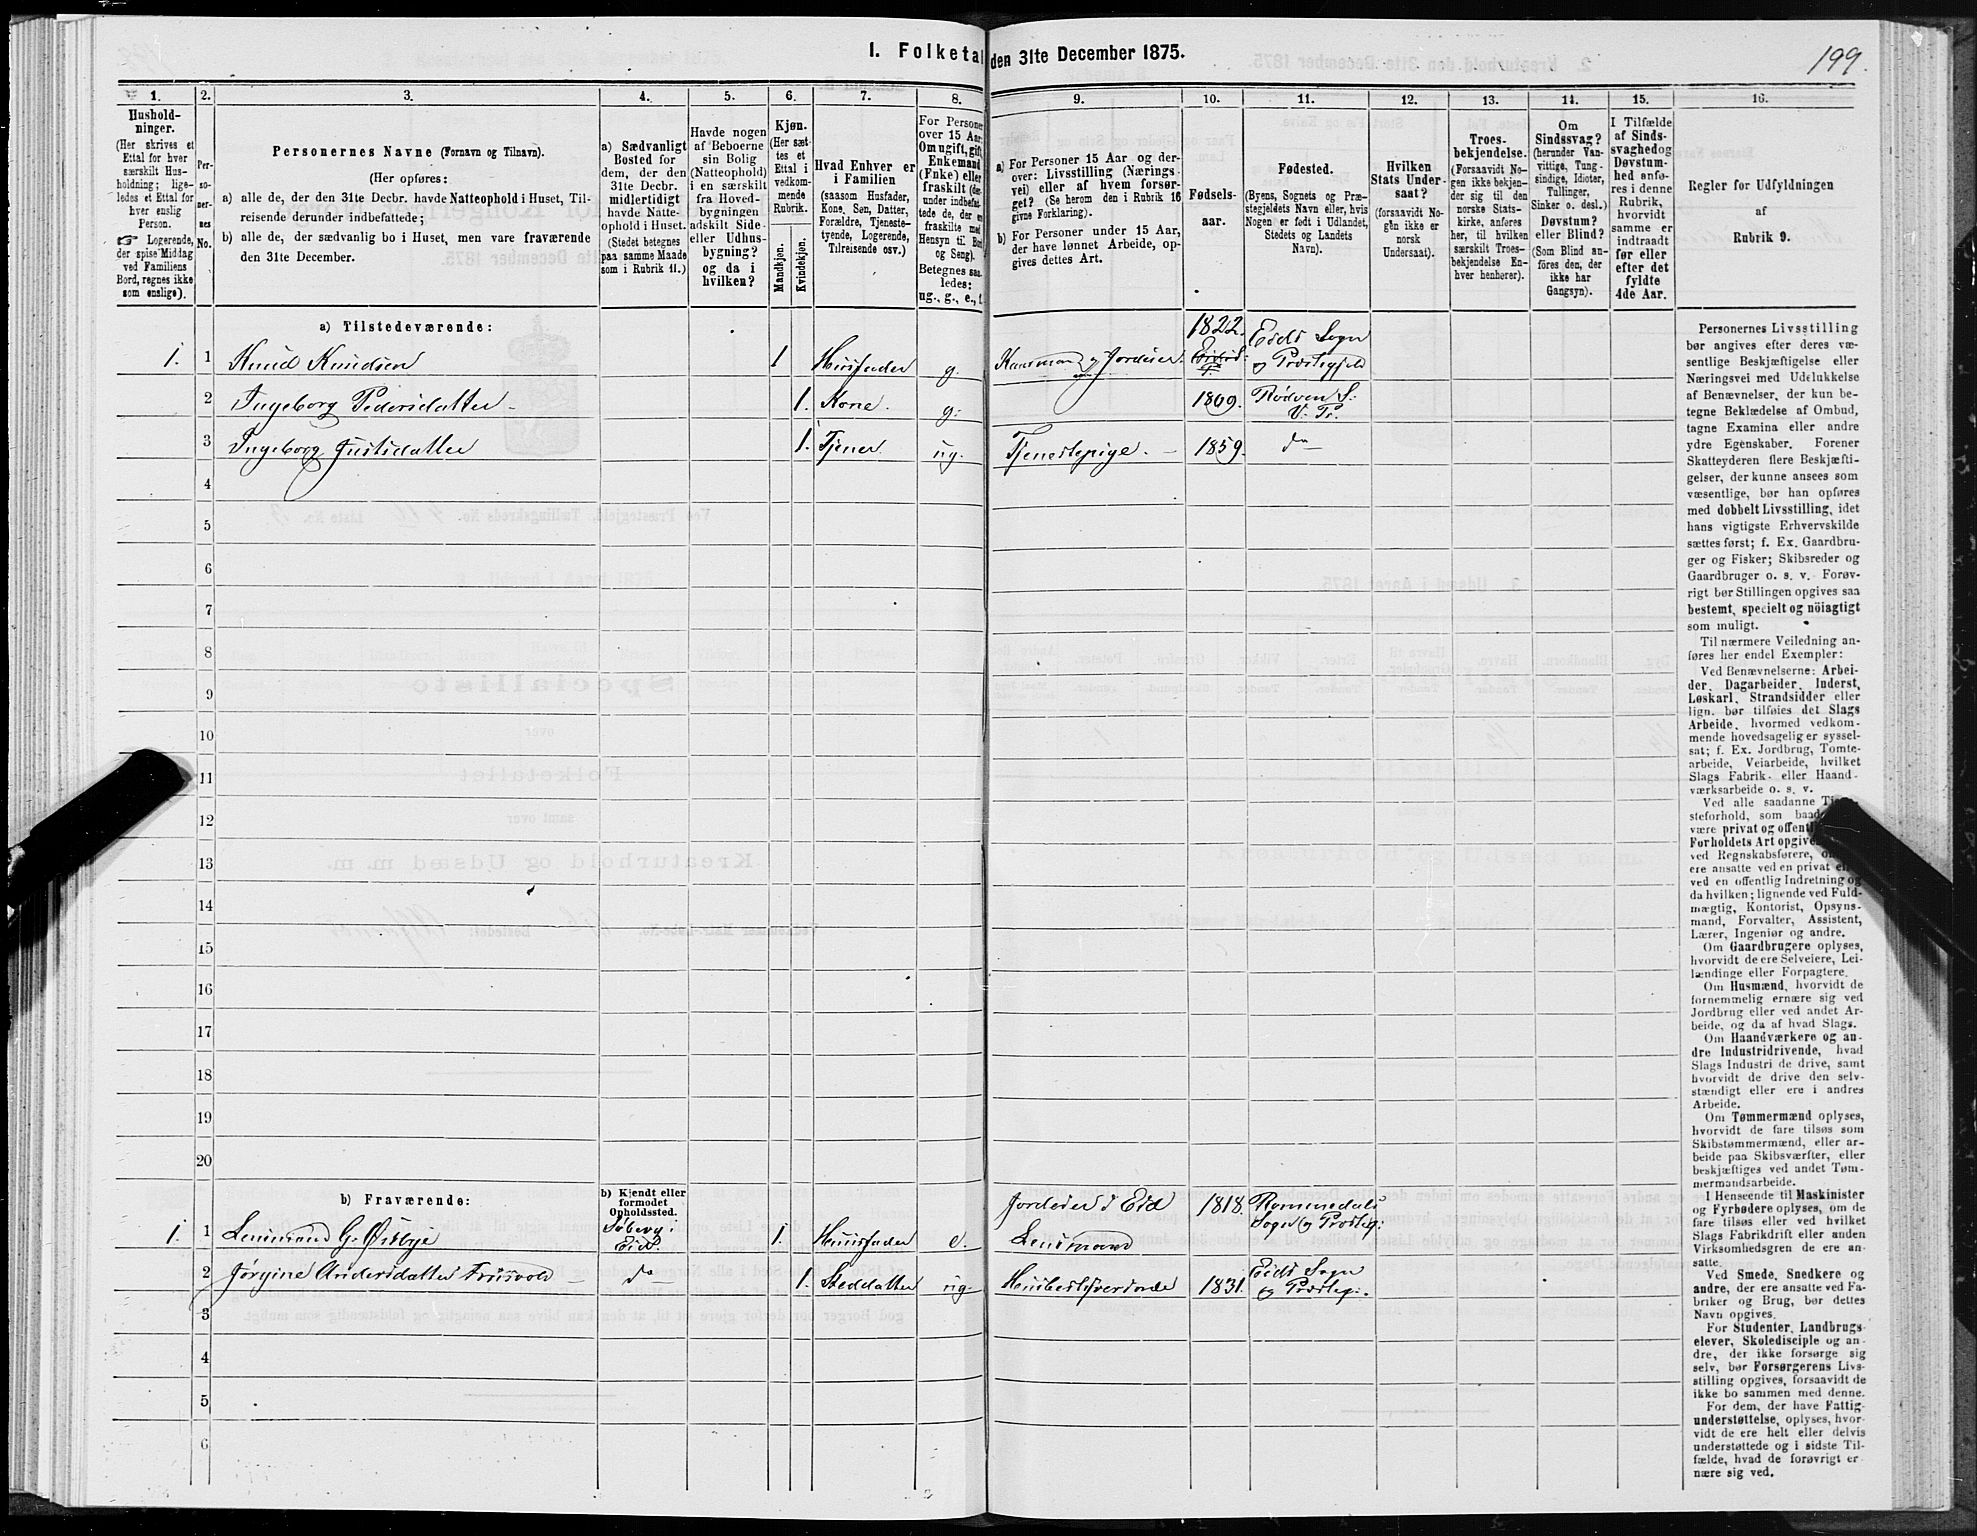 I. Folketal den 31te December 1875.
199.
1.
Hushold-
ninger.
(Her skrives et
Ettal for hver
særskilt Hus-
holdning; lige-
ledes et Ettal for
hver enslig
Person.
☞ Logerende,
der spise Middag
ved Familiens
Bord, regnes ikke
som enslige).
2.
Per-
so-
ner-
nes
No.
3.
Personernes Navne (Fornavn og Tilnavn).
(Her opføres:
a) alle de, der den 31te Decbr. havde Natteophold i Huset, Til-
reisende derunder indbefattede;
b) alle de, der sædvanlig bo i Huset, men vare fraværende
den 31te December.
4.
a) Sædvanligt
Bosted for
dem, der den
31te Decbr.
midlertidigt
havde Natte-
ophold i Huset.
(Stedet betegnes
paa samme Maade
som i Rubrik 11.)
5.
Havde nogen
af Beboerne
sin Bolig
(Natteophold)
i en særskilt
fra Hoved-
bygningen
adskilt Side-
eller Udhus-
bygning?
og da i
hvilken?
6.
Kjøn.
(Her sæt-
tes et
Ettal i
vedkom-
mende
Rubrik.
Mandkjøn.
Kvindekjøn.
7.
Hvad Enhver er
i Familien
(saasom Husfader,
Kone, Søn, Datter,
Forældre, Tjeneste-
tyende, Logerende,
Tilreisende osv.)
8.
For Personer
over 15 Aar:
Om ugift, gift,
Enkemand
(Enke) eller
fraskilt
under indbefat-
tede de, der er
fraskilte med
Hensyn til Bord
og Seng).
Betegnes saa-
ledes:
ug., g., e., f.
9.
a) For Personer 15 Aar og der-
over: Livsstilling (Nærings-
vei) eller af hvem forsør-
get? (Se herom den i Rubrik 16
givne Forklaring).
b) For Personer under 15 Aar,
der have lønnet Arbeide, op-
gives dettes Art.
10.
Fødsels-
aar.
11.
Fødested.
(Byens, Sognets og Præ-
stegjeldets Navn eller, hvis
Nogen er født i Udlandet,
Stedets og Landets
Navn).
12.
Hvilken
Stats Under-
saat?
(forsaavidt No-
gen ikke er
norsk
Undersaat).
13.
Troes-
bekjendelse.
(Forsaavidt No-
gen ikke bekjen-
der sig til den
norske Stats-
kirke, anføres
her, til hvilken
særskilt Troes-
bekjendelse En-
hver henhører).
14.
Om
Sindssvag?
(herunder Van-
vittige, Tung-
sindige, Idioter,
Tullinger,
Sinker o. desl.)
Døvstum?
eller Blind?
(Som Blind an-
føres den, der
ikke har
Gangsyn).
15.
I Tilfælde
af Sinds-
svaghed og
Døvstum-
hed anfø-
res i denne
Rubrik,
hvorvidt
samme er
indtraadt
før eller
efter det
fyldte
4de Aar.
16.
Regler for Udfyldningen
af
Rubrik 9.
a) Tilstedeværende:
1. 1 Knud Knudsen 1 Huusfader g. Kaarmand og Jordeier. 1822. Eids Sogn
og Præstegjeld
2 Ingeborg Pedersdatter 1. Kone. g. 1809. Rødven S.
V. Pr.
3 Ingeborg Justisdatter 1. Tjener ug. Tjenestepige. 1859. do
4
5
6
7
8
9
10
11
12
13
14
15
16
17
18
19
20
b) Fraværende:
b) Kjendt eller
formodet
Opholdssted.
1. 1 Lensmand G. Østbye Søberg i
Eid. 1. Huusfader e. Jordeier i Eid
Lensmand 1818. Rommedals
Sogn og Præsteg:
2 Jørgine Andersdatter do 1. Steddatter ug. Huusbestyrerinde 1831. Eids Sogn
og Præsteg:
3
4
5
6
Personernes Livsstilling
bør angives efter deres væ-
sentlige Beskjæftigelse eller
Næringsvei med Udelukkelse
af Benævnelser, der kun be-
tegne Beklædelse af Ombud,
tagne Examina eller andre
ydre Egenskaber. Forener
Skatteyderen flere Beskjæfti-
gelser, der kunne ansees som
væsentlige, bør han opføres
med dobbelt Livsstilling, idet
hans vigtigste Erhvervskilde
sættes først; f. Ex. Gaardbru-
ger og Fisker; Skibsreder og
Gaardbruger o. s. v. Forøv-
rigt bør Stillingen opgives saa
bestemt, specielt og nöiagtigt
som muligt.
Til nærmere Veiledning an-
føres her endel Exempler:
Ved Benævnelserne: Arbei-
der, Dagarbeider, Inderst,
Løskarl, Strandsidder eller
lign. bør tilføies det Slags
Arbeide, hvormed vedkom-
mende hovedsagelig er syssel-
sat; f. Ex. Jordbrug, Tomte-
arbeide, Veiarbeide, hvilket
Slags Fabrik- eller Haand-
værksarbeide o. s. v.
Ved alle saadanne
steforhold, som
være privat og
Forholdets Art
ved Regnskabsførere,
ere ansatte ved en privat
ved en offentlig Indretning og
da hvilken; lignende ved Fuld-
mægtig, Kontorist, Opsyns-
mand, Forvalter, Assistent,
Lærer, Ingeniør og andre.
Om Gaardbrugere oplyses,
hvorvidt de ere Selveiere, Lei-
lændinge eller Forpagtere.
Om Husmænd, hvorvidt de
fornemmelig ernære sig ved
Jordbrug eller ved andet Ar-
beide, og da af hvad Slags.
Om Haandværkere og an-
dre Industridrivende, hvad
Slags Industri de drive, samt
hvorvidt de drive den selv-
stændigt eller ere i andres
Arbeide.
Om Tømmermænd oplyses,
hvorvidt de fare tilsøs som
Skibstømmermænd, eller ar-
beide paa Skibsværfter, eller
beskjæftiges ved andet Tøm-
mermandsarbeide.
I Henseende til Maskinister
og Fyrbødere oplyses, om de
fare tilsøs eller ved hvilket
Slags Fabrikdrift eller anden
Virksomhedsgren de ere an-
satte.
Ved Smede, Snedkere og
andre, der ere ansatte ved Fa-
briker og Brug, bør dettes
Navn opgives.
For Studenter, Landbrugs-
elever, Skoledisciple og an-
dre, der ikke forsørge sig
selv, bør Forsørgerens Livs-
stilling opgives, forsaavidt de
ikke bo sammen med denne.
For dem, der have Fattig-
understøttelse, oplyses, hvor-
vidt de ere helt eller delvis
understøttede og i sidste Til-
fælde, hvad de forøvrigt er-
nære sig ved.